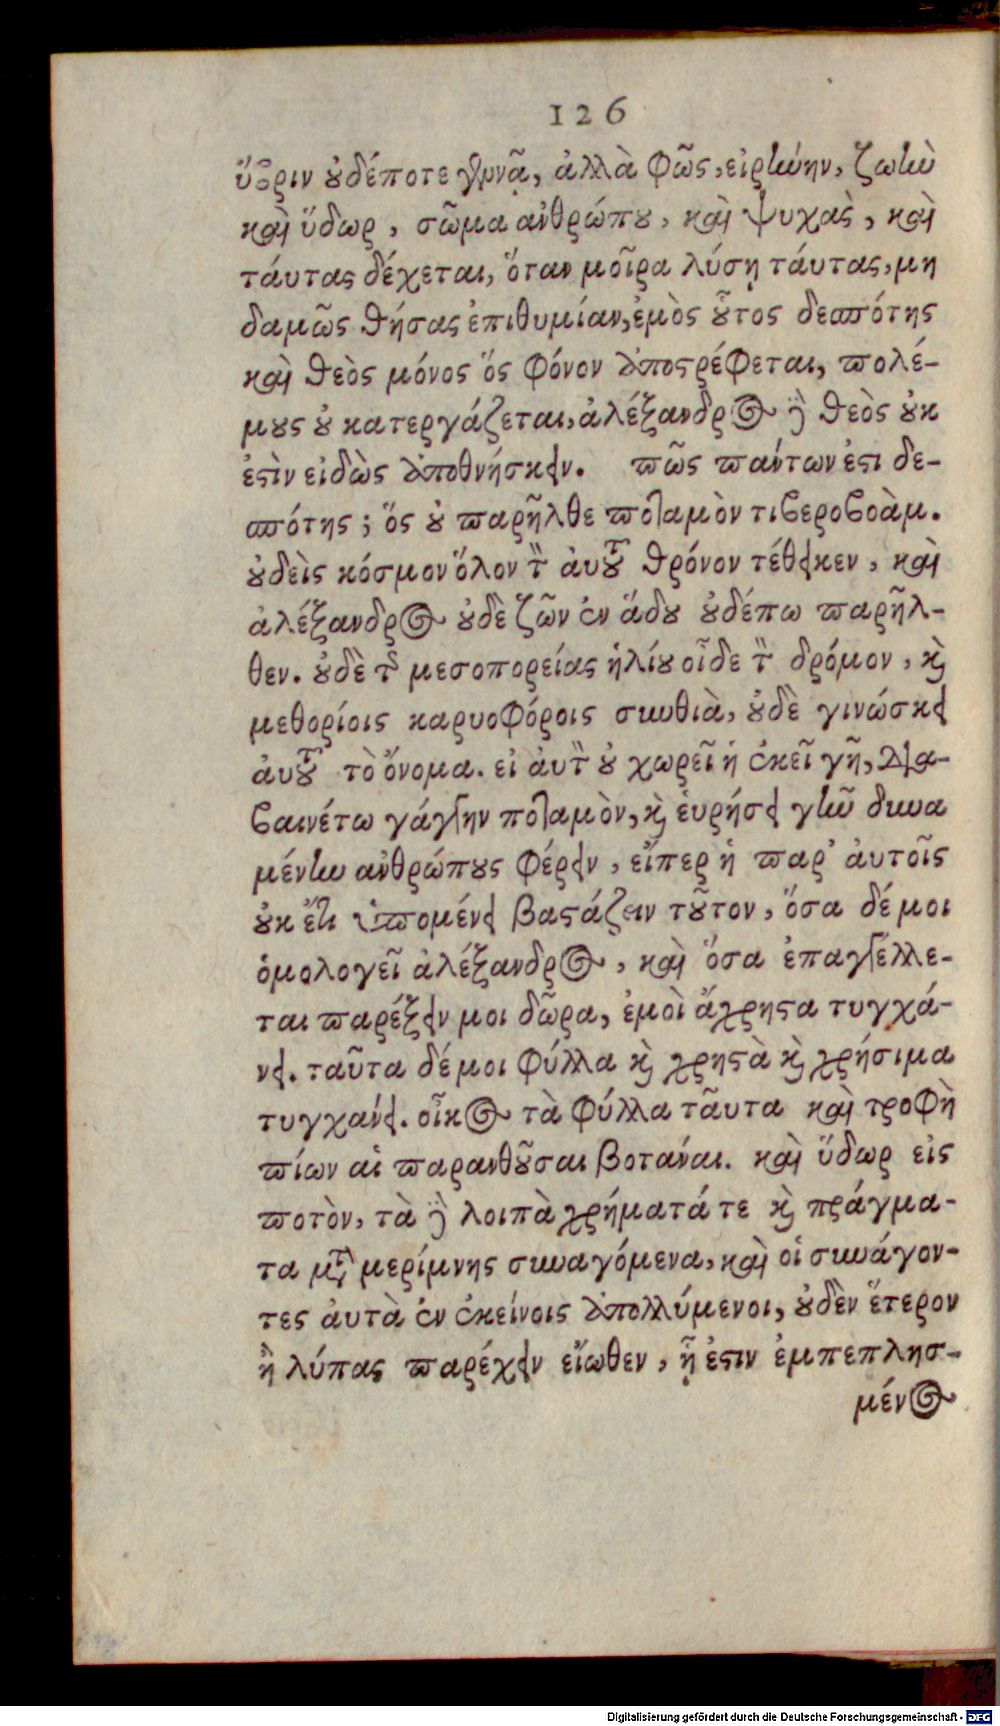 126
ὕβριν οὐδέποτε γεννᾷ, ἀλλὰ φῶς, εἰρήνην, ζωὴν
καὶ ὕδωρ, σῶμα ἀνθρώπου, καὶ ψυχὰς, καὶ
τάυτας δέχεται, ὅταν μοῖρα λύσῃ τάυτας, μη
δαμῶς θήσας ἐπιθυμίαν, ἐμὸς οὗτος δεσπότης
καὶ θεὸς μόνος ὃς φόνον ἀποστρέφεται, πολέ-
μους οὐ κατεργάζεται, ἀλέξανδρος δὲ θεὸς οὐκ
ἐστὶν εἰδὼς ἀποθνήσκειν. πῶς πάντων ἐστι δε-
σπότης; ὃς οὐ παρῆλθε ποταμὸν τιβεροβοὰμ.
οὐδεὶς κόσμον ὅλον τὸν ἀυτοῦ θρόνον τέθεικεν, καὶ
ἀλέξανδρος οὐδὲ ζῶν ἐν ἅδου οὐδέπω παρῆλ-
θεν. οὐδὲ τῆς μεσοπορείας ἡλίου οἶδε τὸν δρόμον, καὶ
μεθορίοις καρυοφόροις σκυθιὰ, οὐδὲ γινώσκει
ἀυτοῦ τὸ ὄνομα. εἰ ἀυτὸν οὐ χωρεῖ ἡ ἐκεῖ γῆ, δια-
βαινέτω γάγγην ποταμὸν, καὶ ἑυρήσει γῆν δυνα
μένην ἀνθρώπους φέρειν, εἴπερ ἡ παρ' ἀυτοῖς
οὐκ ἔτι ὑπομένει βαστάζειν τοῦτον, ὅσα δέ μοι
ὁμολογεῖ ἀλέξανδρος, καὶ ὅσα ἐπαγγέλλε-
ται παρέξειν μοι δῶρα, ἐμοὶ ἄχρηστα τυγχά-
νει. ταῦτα δέ μοι φύλλα καὶ χρηστὰ καὶ χρήσιμα
τυγχάνει. οἶκος τὰ φύλλα τᾶυτα καὶ τροφὴ
πίων αἱ παρανθοῦσαι βοτάναι. καὶ ὕδωρ εἰς
ποτὸν, τὰ δὲ λοιπὰ χρήματά τε καὶ πράγμα-
τα μετὰ μερίμνης συναγόμενα, καὶ οἱ συνάγον-
τες ἀυτὰ ἐν ἐκείνοις ἀπολλύμενοι, οὐδὲν ἕτερον
ἢ λύπας παρέχειν εἴωθεν, ᾗ ἐστιν ἐμπεπλησ-
μένος
Digitalisierung gefördert durch die Deutsche Forschungsgemeinschaft - DFG